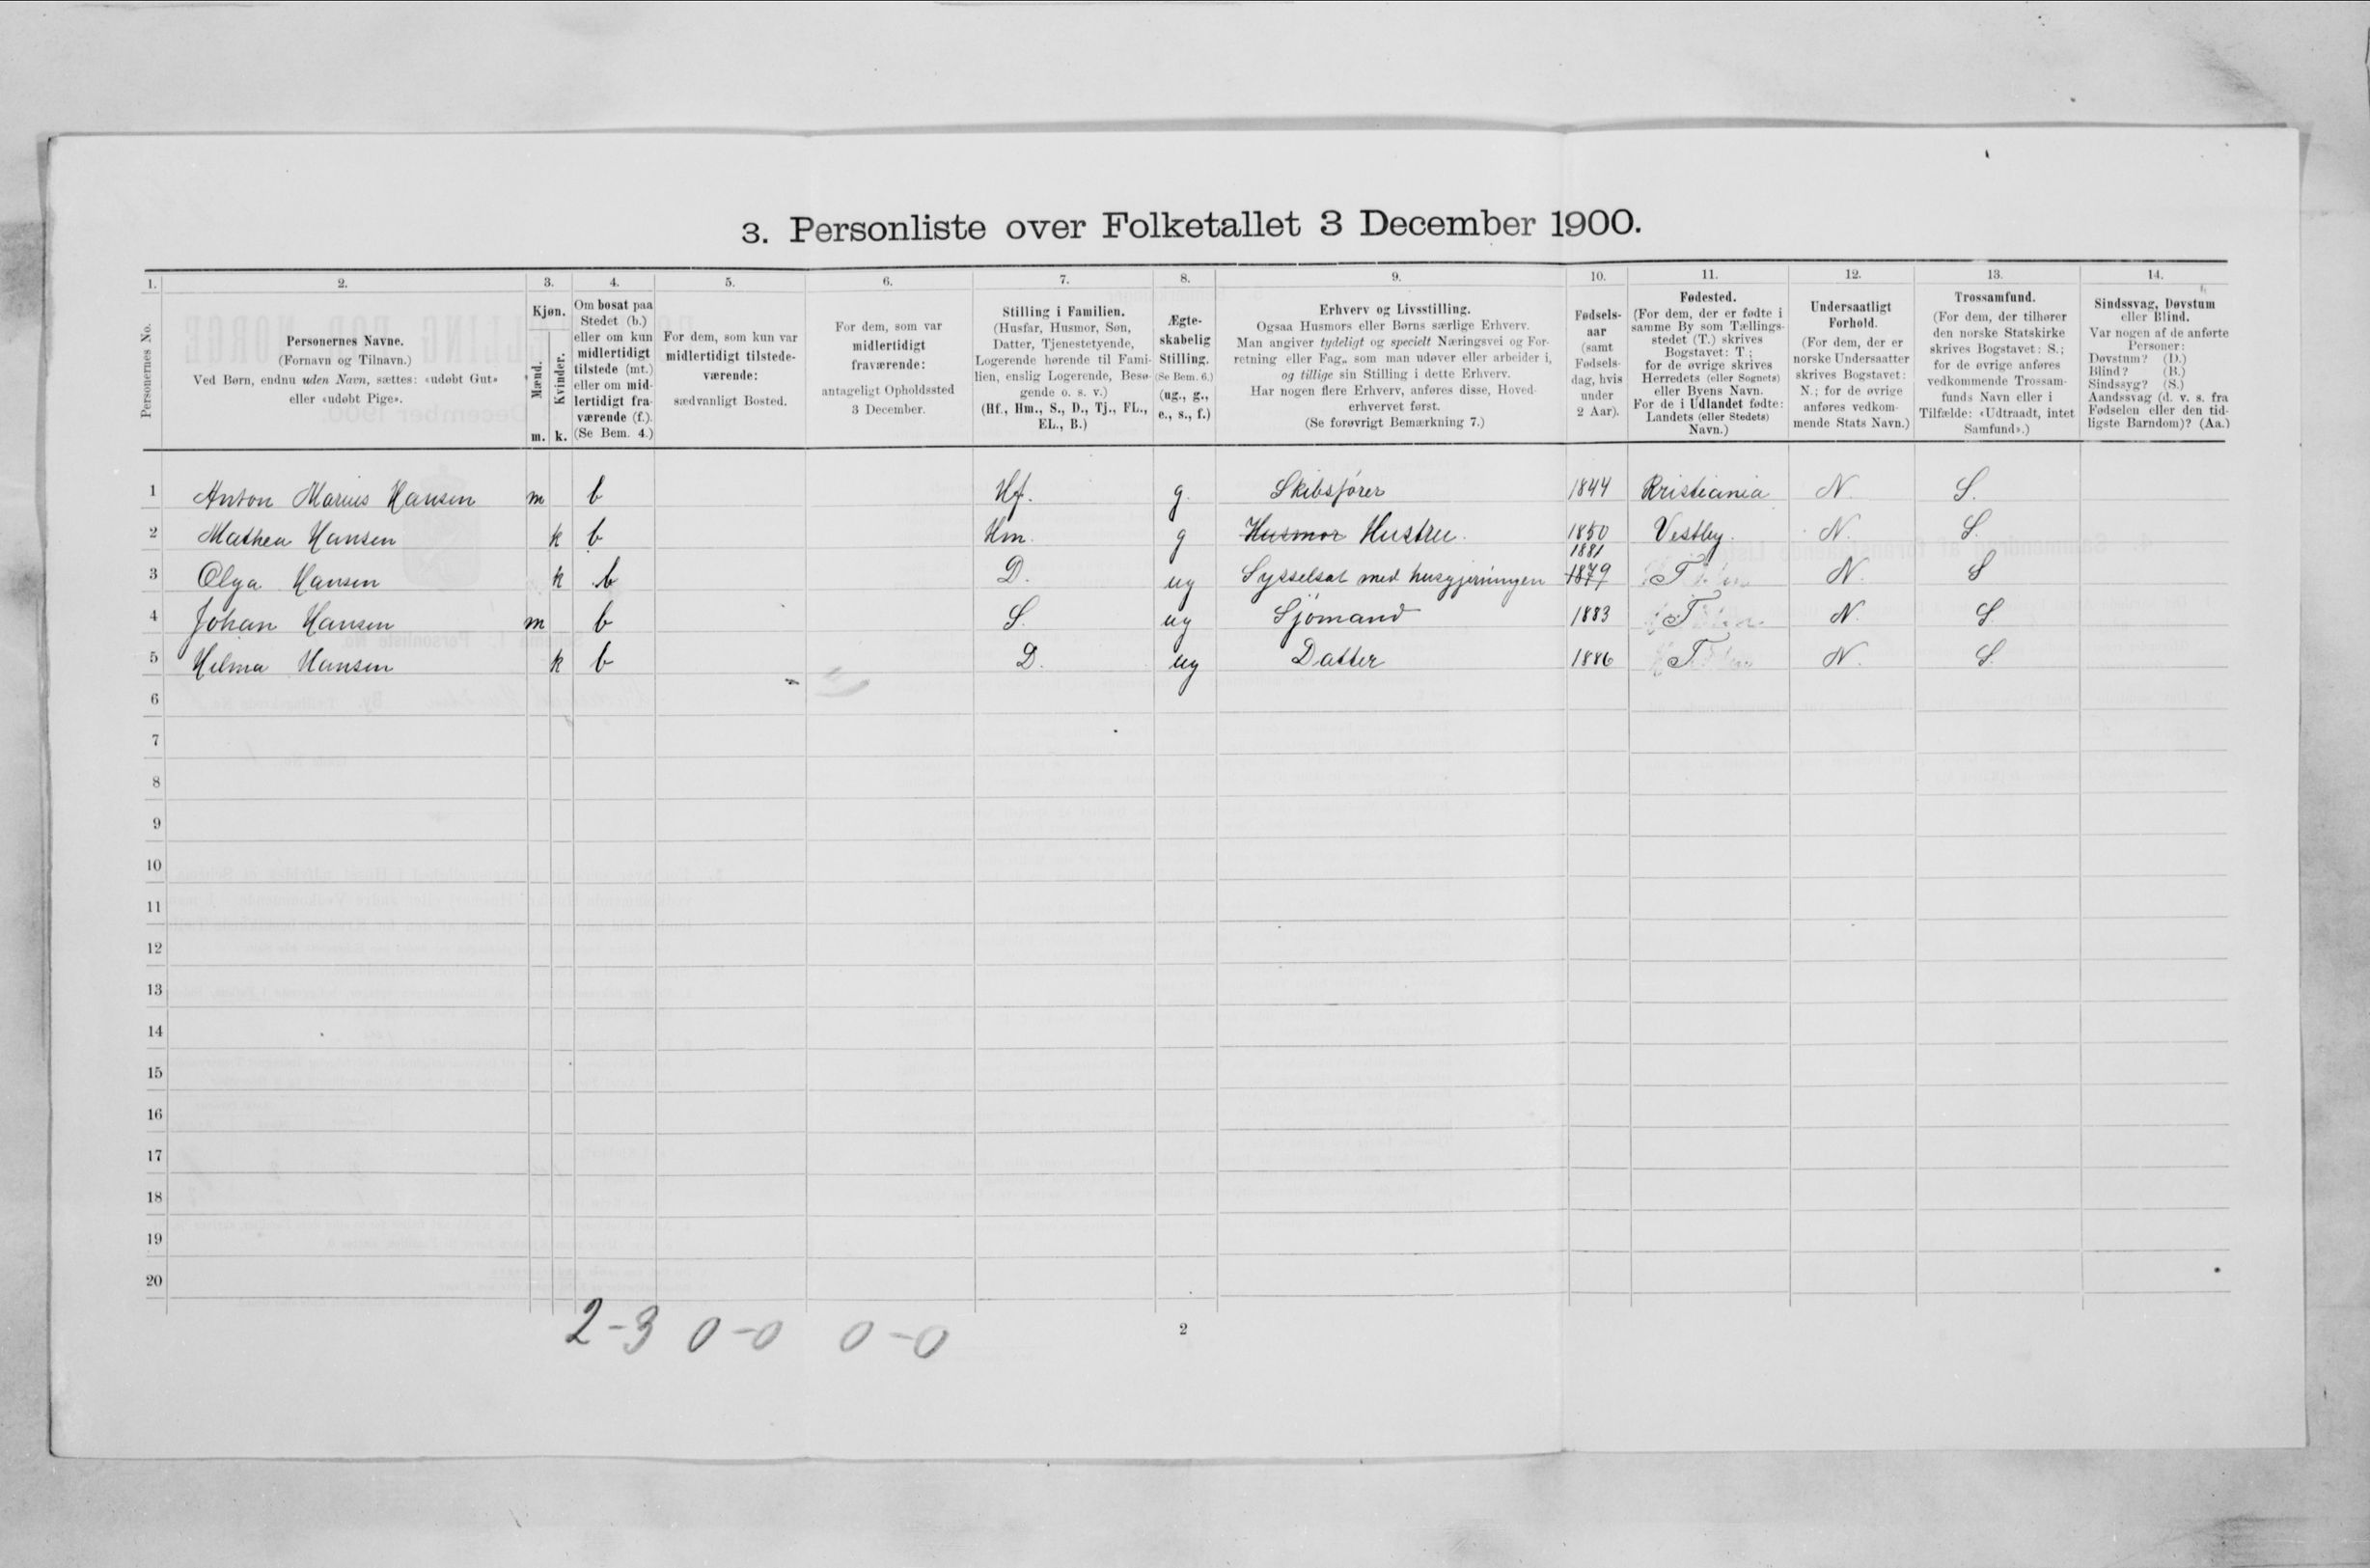 3. Personliste over Folketallet 3 December 1900.
1. 2. 3. 4. 5. 6. 7. 8. 9. 10. 11. 12. 13. 14.
Personernes No.
Personernes Navne.
(Fornavn og Tilnavn.)
Ved Børn, endnu uden Navn, sættes: «udøbt Gut»
eller «udøbt Pige».
Kjøn.
Mænd.
Kvinder.
m. k.
Om bosat paa
Stedet (b.)
eller om kun
midlertidigt
tilstede (mt.)
eller om mid-
lertidigt fra-
værende (f.).
(Se Bem. 4.)
For dem, som kun var
midlertidigt tilstede-
værende:
sædvanligt Bosted.
For dem, som var
midlertidigt
fraværende:
antageligt Opholdssted
3 December.
Stilling i Familien.
(Husfar, Husmor, Søn,
Datter, Tjenestetyende,
Logerende hørende til Fami-
lien, enslig Logerende, Besø-
gende o. s. v.)
(Hf., Hm., S., D., Tj., FL.,
EL., B.)
Ægte-
skabelig
Stilling.
(Se Bem. 6.)
(ug., g.,
e., s., f.)
Erhverv og Livsstilling.
Ogsaa Husmors eller Børns særlige Erhverv.
Man angiver tydeligt og specielt Næringsvei og For-
retning eller Fag, som man udøver eller arbeider i,
og tillige sin Stilling i dette Erhverv.
Har nogen flere Erhverv, anføres disse, Hoved-
erhvervet først.
(Se forøvrigt Bemærkning 7.)
Fødsels-
aar
(samt
Fødsels-
dag, hvis
under
2 Aar).
Fødested.
(For dem, der er fødte i
samme By som Tællings-
stedet (T.) skrives
Bogstavet: T.;
for de øvrige skrives
Herredets (eller Sognets)
eller Byens Navn.
For de i Udlandet fødte:
Landets (eller Stedets)
Navn.)
Undersaatligt
Forhold.
(For dem, der er
norske Undersaatter
skrives Bogstavet:
N.; for de øvrige
anføres vedkom-
mende Stats Navn.)
Trossamfund.
(For dem, der tilhører
den norske Statskirke
skrives Bogstavet: S.;
for de øvrige anføres
vedkommende Trossam-
funds Navn eller i
Tilfælde: «Udtraadt, intet
Samfund».)
Sindssvag, Døvstum
eller Blind.
Var nogen af de anførte
Personer:
Døvstum? (D.)
Blind? (B.)
Sindssyg? (S.)
Aandssvag (d. v. s. fra
Fødselen eller den tid-
ligste Barndom)? (Aa.)
1 Anton Marius Hansen m b Hf. g. Skibsfører 1844 Kristiania N. S.
2 Mathea Hansen k b Hm. g Husmor Hustru. 1850 Vestby. N. S.
1881
3 Olga Hansen k b D. ug Sysselsat med husgjerningen 1879 T N. S
4 Johan Hansen m b S. ug Sjømand 1883 T N. S.
5 Helma Hansen k b D. ug Datter 1886 T. N. S.
6
7
8
9
10
11
12
13
14
15
16
17
18
19
20
2-3 0-0 0-0
2